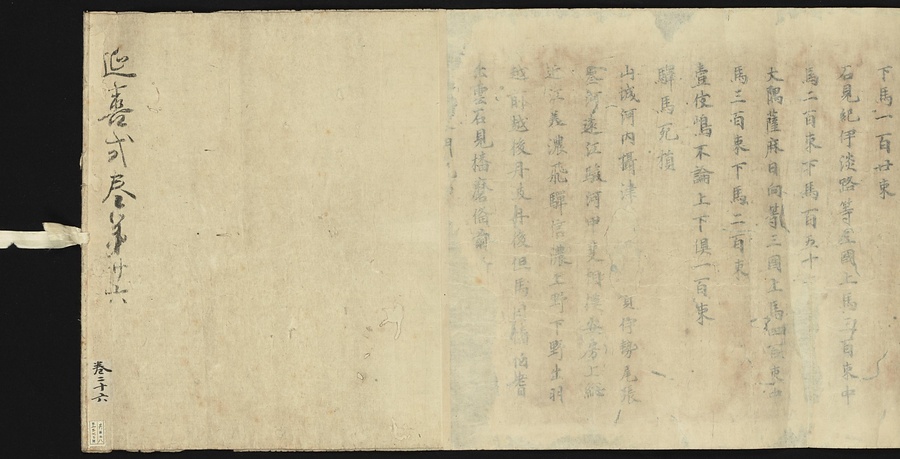 下馬一百廿束
石見紀伊淡路等五國上馬二百束中
馬二百束下馬一百五十
大隅薩麻日向等三國上馬四百束中
馬三百束下馬二百束
壹伎嶋不論上下倶一百束
驛馬死損
山城河内攝津 伊勢尾張
參河遠江駿河甲斐相模安房上総
近江美濃飛驒信濃上野下野出羽
越前越後丹波丹後但馬因幡伯耆
出雲石見播磨備前
延喜式巻第廿六
巻二十六